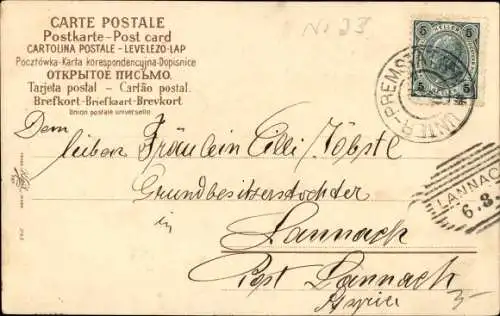 No 23
CARTE POSTALE
Postkarte - Post card
CARTOLINA POSTALE - LEVELEZO-LAP
Pocztówka-Karta korespondencyjna-Dopisnice
ОТКРЫТОЕ ПИСЬМО.
Tarjeta postal - Cartão postal.
Brefkort-Briefkaart-Brevkort
Union postale universelle.
5 HELLER 5
5 5
UNTER-PREMST
LANNAC
6.8.
Dem
lieben Fräulein Cilli Töbstl
Grundbesitzerstochter
in
Lannach
Post Lannach